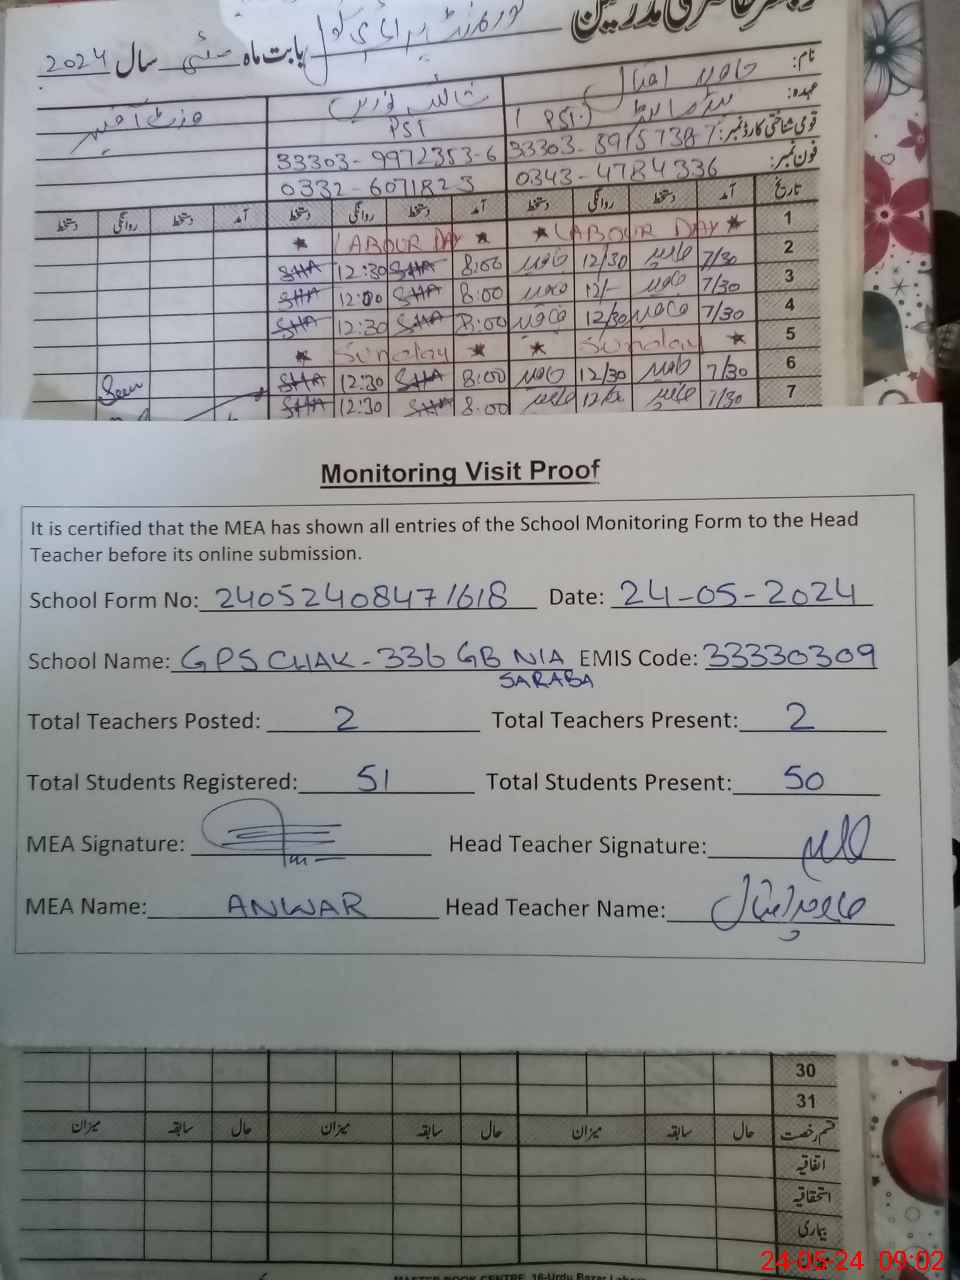 رجسٹر حاضری مدرسین گورنمنٹ پرائمری سکول بابت ماہ مئی سال 2024
نام: جاوید اقبال
عہدہ: PST
قومی شناختی کارڈ نمبر: 33303-9972353-6
فون نمبر: 0343-4784336 0332-6071823
تاریخ آمد دستخط روانگی دستخط آمد دستخط روانگی دستخط آمد دستخط روانگی دستخط
1 ★ LABOUR DAY ★ ★ LABOUR DAY ★
2 7/30 جاوید 12/30 جاوید 8:00 SHA 12:30 SHA
3 7/30 جاوید 12/- جاوید 8:00 SHA 12:00 SHA
4 7/30 جاوید 12/30 جاوید 8:00 SHA 12:30 SHA
5 ★ Sunday ★ ★ Sunday ★
6 7/30 جاوید 12/30 جاوید 8:00 SHA 12:30 SHA Seen
7 7/30 جاوید جاوید 8:00 SHA 12:30 SHA
Monitoring Visit Proof
It is certified that the MEA has shown all entries of the School Monitoring Form to the Head
Teacher before its online submission.
School Form No: 24052408471618 Date: 24-05-2024
School Name: GPS CHAK-336 GB NIA EMIS Code: 33330309
SARABA
Total Teachers Posted: 2 Total Teachers Present: 2
Total Students Registered: 51 Total Students Present: 50
MEA Signature: Head Teacher Signature:
MEA Name: ANWAR Head Teacher Name: جاوید اقبال
30
31
قسم رخصت حال سابقہ میزان حال سابقہ میزان حال سابقہ میزان
اتفاقیہ
استحقاقیہ
بیماری
MASTER BOOK CENTRE, 16-Urdu Bazar Lahore
24-05-24 09:02